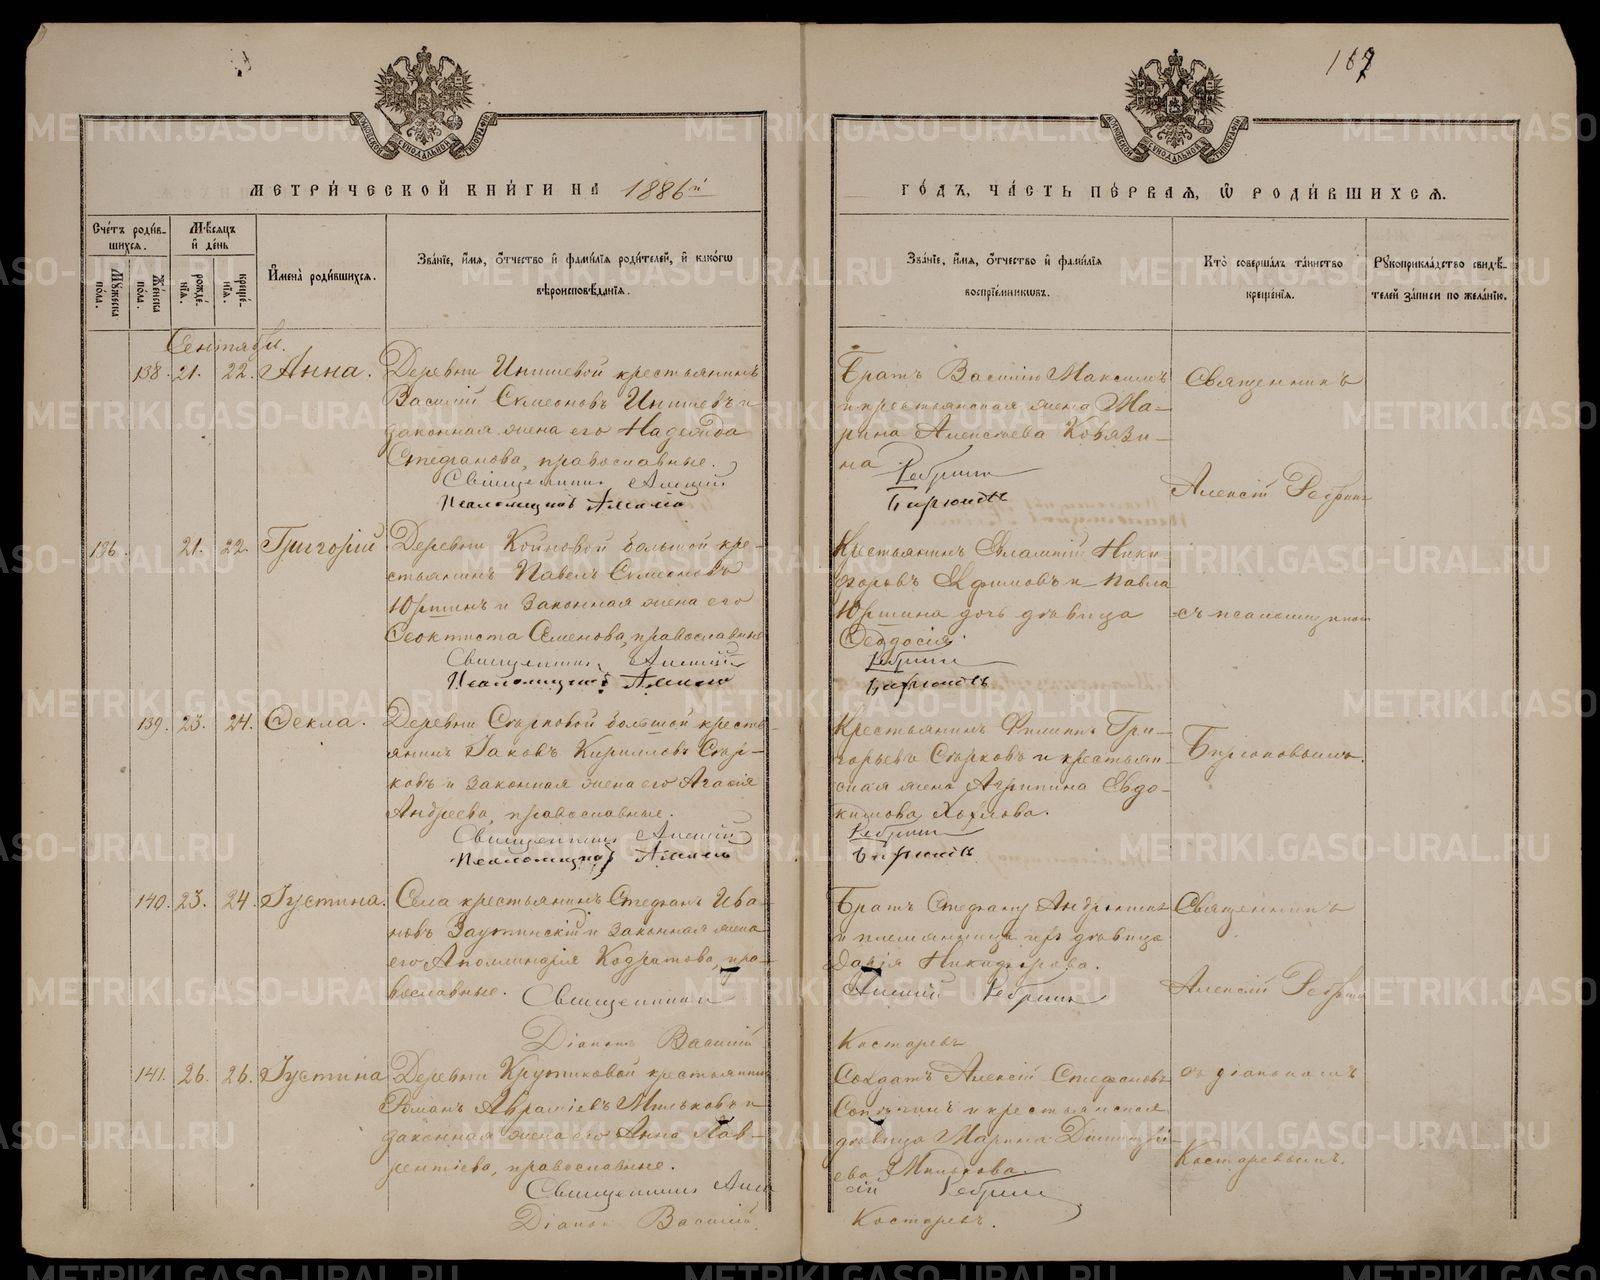 187
МЕТРИ́ЧЕСКОЙ КНИ́ГИ НА 1886й
ГО́ДЪ, ЧА́СТЬ ПЕ́РВАЯ, Ѡ РОДИ́ВШИХСЯ.
Сче́тъ роди́в-
шихся.
Мꙋжеска по́ла.
Же́нска по́ла.
Мѣ́сяцъ
и҆ де́нь
рожде́нїя.
креще́нїя.
И҆мена̀ роди́вшихся.
Зва́нїе, и҆́мя, ѻ҆́тчество и҆ фами́лїя роди́телей, и҆ како́гѡ
вѣроисповѣ́данїя.
Зва́нїе, и҆́мя, ѻ҆́тчество и҆ фами́лїя
воспрїе́мникѡвъ.
Кто̀ соверша́лъ та́инство
креще́нїя.
Рꙋкоприкла́дство свидѣ́-
телей за́писи по жела́нїю.
Сентябрь.
138. 21. 22. Анна.
Деревни Инишевой крестьянинъ
Василій Симеоновъ Инишевъ и
законная жена его Надежда
Стефанова, православные.
Священникъ Алексій
Псаломщикъ
Братъ Василію Максимъ
и крестьянская жена Ма-
рина Алексѣева Ковязи-
на
Ребринъ
Бирюковъ
Священникъ
Алексій Ребринъ
136. 21. 22. Григорій.
Деревни Койновой большой кре-
стьянинъ Павелъ Симеоновъ
Юршинъ и законная жена его
Ѳеоктиста Семенова, православные
Священникъ Алексій
Псаломщикъ
Крестьянинъ Евлампій Ники-
форовъ Ефимовъ и Павла
Юршина дочь дѣвица
Ѳеодосія.
Ребринъ
Бирюковъ
съ псаломщикомъ
139. 23. 24. Ѳекла.
Деревни Сѣрковой большой кресть-
янинъ Іаковъ Кирилловъ Сѣр-
ковъ и законная жена его Агафія
Андреева, православные.
Священникъ Алексій
Псаломщикъ
Крестьянинъ Филиппъ Гри-
горьевъ Сѣрковъ и крестьян-
ская жена Агриппина Евдо-
кимова Хохлова.
Ребринъ
Бирюковъ
Бирюковымъ.
140. 23. 24. Іустина.
Села крестьянинъ Стефанъ Ива-
новъ Заутинскій и законная жена
его Аполлинарія Кодратова, пра-
вославные.
Священникъ
Діаконъ Василій
Братъ Стефану
и племянница дѣвица
Дарія Никифорова.
Алексій Ребринъ
Костаревъ
Священникъ
Алексій Ребринъ
141. 26. 26. Іустина
Деревни Крутиковой крестьянинъ
Романъ Авраміевъ Мильковъ и
законная жена его Анна Лав-
рентіева, православные.
Священникъ Алек
Діаконъ Василій.
Солдатъ Алексій Стефановъ
и крестьянская
дѣвица Марина Димитрі-
ева Милькова
сій Ребринъ
Костаревъ.
съ діакономъ
Костаревымъ.
METRIKI.GASO-URAL.RU